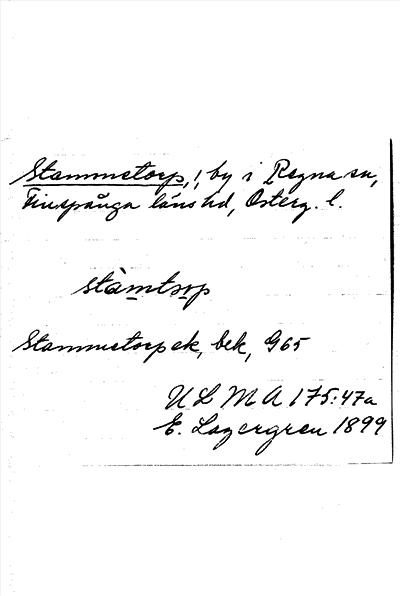 Stammetorp, ; by i Regna sn,
Finspånga länshd, Österg. l.
stàmtsop
Stammetorp ek, bek, G65
ULMA 175:47a
E. Lagergren 1899